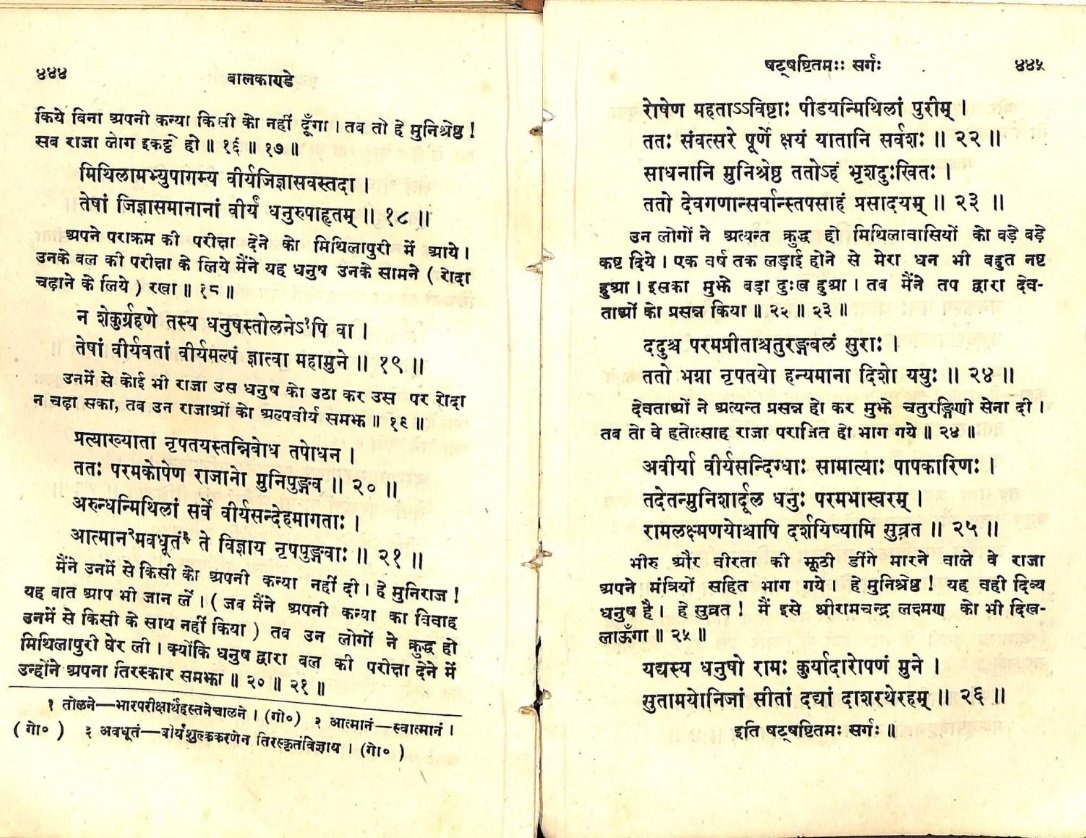 ४४४
बालकाण्डे
किये बिना अपनी कन्या किसी को नहीं दूँगा । तब तो हे मुनिश्रेष्ठ !
सब राजा लोग इकट्ठे हो ॥ १६ ॥ १७ ॥
मिथिलामभ्युपागम्य वीर्यजिज्ञासवस्तदा ।
तेषां जिज्ञासमानानां वीर्यं धनुरुपाहृतम् ॥ १८ ॥
अपने पराक्रम की परीक्षा देने को मिथिलापुरी में आये ।
उनके बल की परीक्षा के लिये मैंने यह धनुष उनके सामने ( रोदा
चढ़ाने के लिये ) रखा ॥ १८ ॥
न शेकुर्ग्रहणे तस्य धनुषस्तोलनेऽ१पि वा ।
तेषां वीर्यवतां वीर्यमल्पं ज्ञात्वा महामुने ॥ १९ ॥
उनमें से कोई भी राजा उस धनुष को उठा कर उस पर रोदा
न चढ़ा सका, तब उन राजाओं को अल्पवीर्य समझ ॥ १९ ॥
प्रत्याख्याता नृपतयस्तन्निबोध तपोधन ।
ततः परमकोपेण राजानो मुनिपुङ्गव ॥ २० ॥
अरुन्धन्मिथिलां सर्वे वीर्यसन्देहमागताः ।
आत्मान२मवधूतं३ ते विज्ञाय नृपपुङ्गवाः ॥ २१ ॥
मैंने उनमें से किसी को अपनी कन्या नहीं दी । हे मुनिराज !
यह बात आप भी जान लें । ( जब मैंने अपनी कन्या का विवाह
उनमें से किसी के साथ नहीं किया ) तब उन लोगों ने क्रुद्ध हो
मिथिलापुरी घेर ली । क्योंकि धनुष द्वारा बल की परीक्षा देने में
उन्होंने अपना तिरस्कार समझा ॥ २० ॥ २१ ॥
१ तोलने—भारपरीक्षार्थंहस्तनेचालने । (गो०) २ आत्मानं—स्वात्मानं ।
( गो० ) ३ अवधूतं—वीर्यशुल्ककरणेन तिरस्कृतंविज्ञाय । (गो० )
षट्षष्टितमः सर्गः
४४५
रोषेण महताऽऽविष्टाः पीडयन्मिथिलां पुरीम् ।
ततः संवत्सरे पूर्णे क्षयं यातानि सर्वशः ॥ २२ ॥
साधनानि मुनिश्रेष्ठ ततोऽहं भृशदुःखितः ।
ततो देवगणान्सर्वान्स्तपसाहं प्रसादयम् ॥ २३ ॥
उन लोगों ने अत्यन्त क्रुद्ध हो मिथिलावासियों को बड़े बड़े
कष्ट दिये । एक वर्ष तक लड़ाई होने से मेरा धन भी बहुत नष्ट
हुआ । इसका मुझे बड़ा दुःख हुआ । तब मैंने तप द्वारा देव-
ताओं को प्रसन्न किया ॥ २२ ॥ २३ ॥
ददुश्च परमप्रीताश्चतुरङ्गबलं सुराः ।
ततो भग्ना नृपतयो हन्यमाना दिशो ययुः ॥ २४ ॥
देवताओं ने अत्यन्त प्रसन्न हो कर मुझे चतुरङ्गिणी सेना दी ।
तब तो वे हतोत्साह राजा पराजित हो भाग गये ॥ २४ ॥
अवीर्या वीर्यसन्दिग्धाः सामात्याः पापकारिणः ।
तदेतन्मुनिशार्दूल धनुः परमभास्वरम् ।
रामलक्ष्मणयोश्चापि दर्शयिष्यामि सुव्रत ॥ २५ ॥
भीरु और वीरता की झूठी डींगे मारने वाले वे राजा
अपने मंत्रियों सहित भाग गये । हे मुनिश्रेष्ठ ! यह वही दिव्य
धनुष है । हे सुव्रत ! मैं इसे श्रीरामचन्द्र लक्ष्मण को भी दिख-
लाऊँगा ॥ २५ ॥
यद्यस्य धनुषो रामः कुर्यादारोपणं मुने ।
सुतामयोनिजां सीतां दद्यां दाशरथेरहम् ॥ २६ ॥
इति षट्षष्टितमः सर्गः ॥